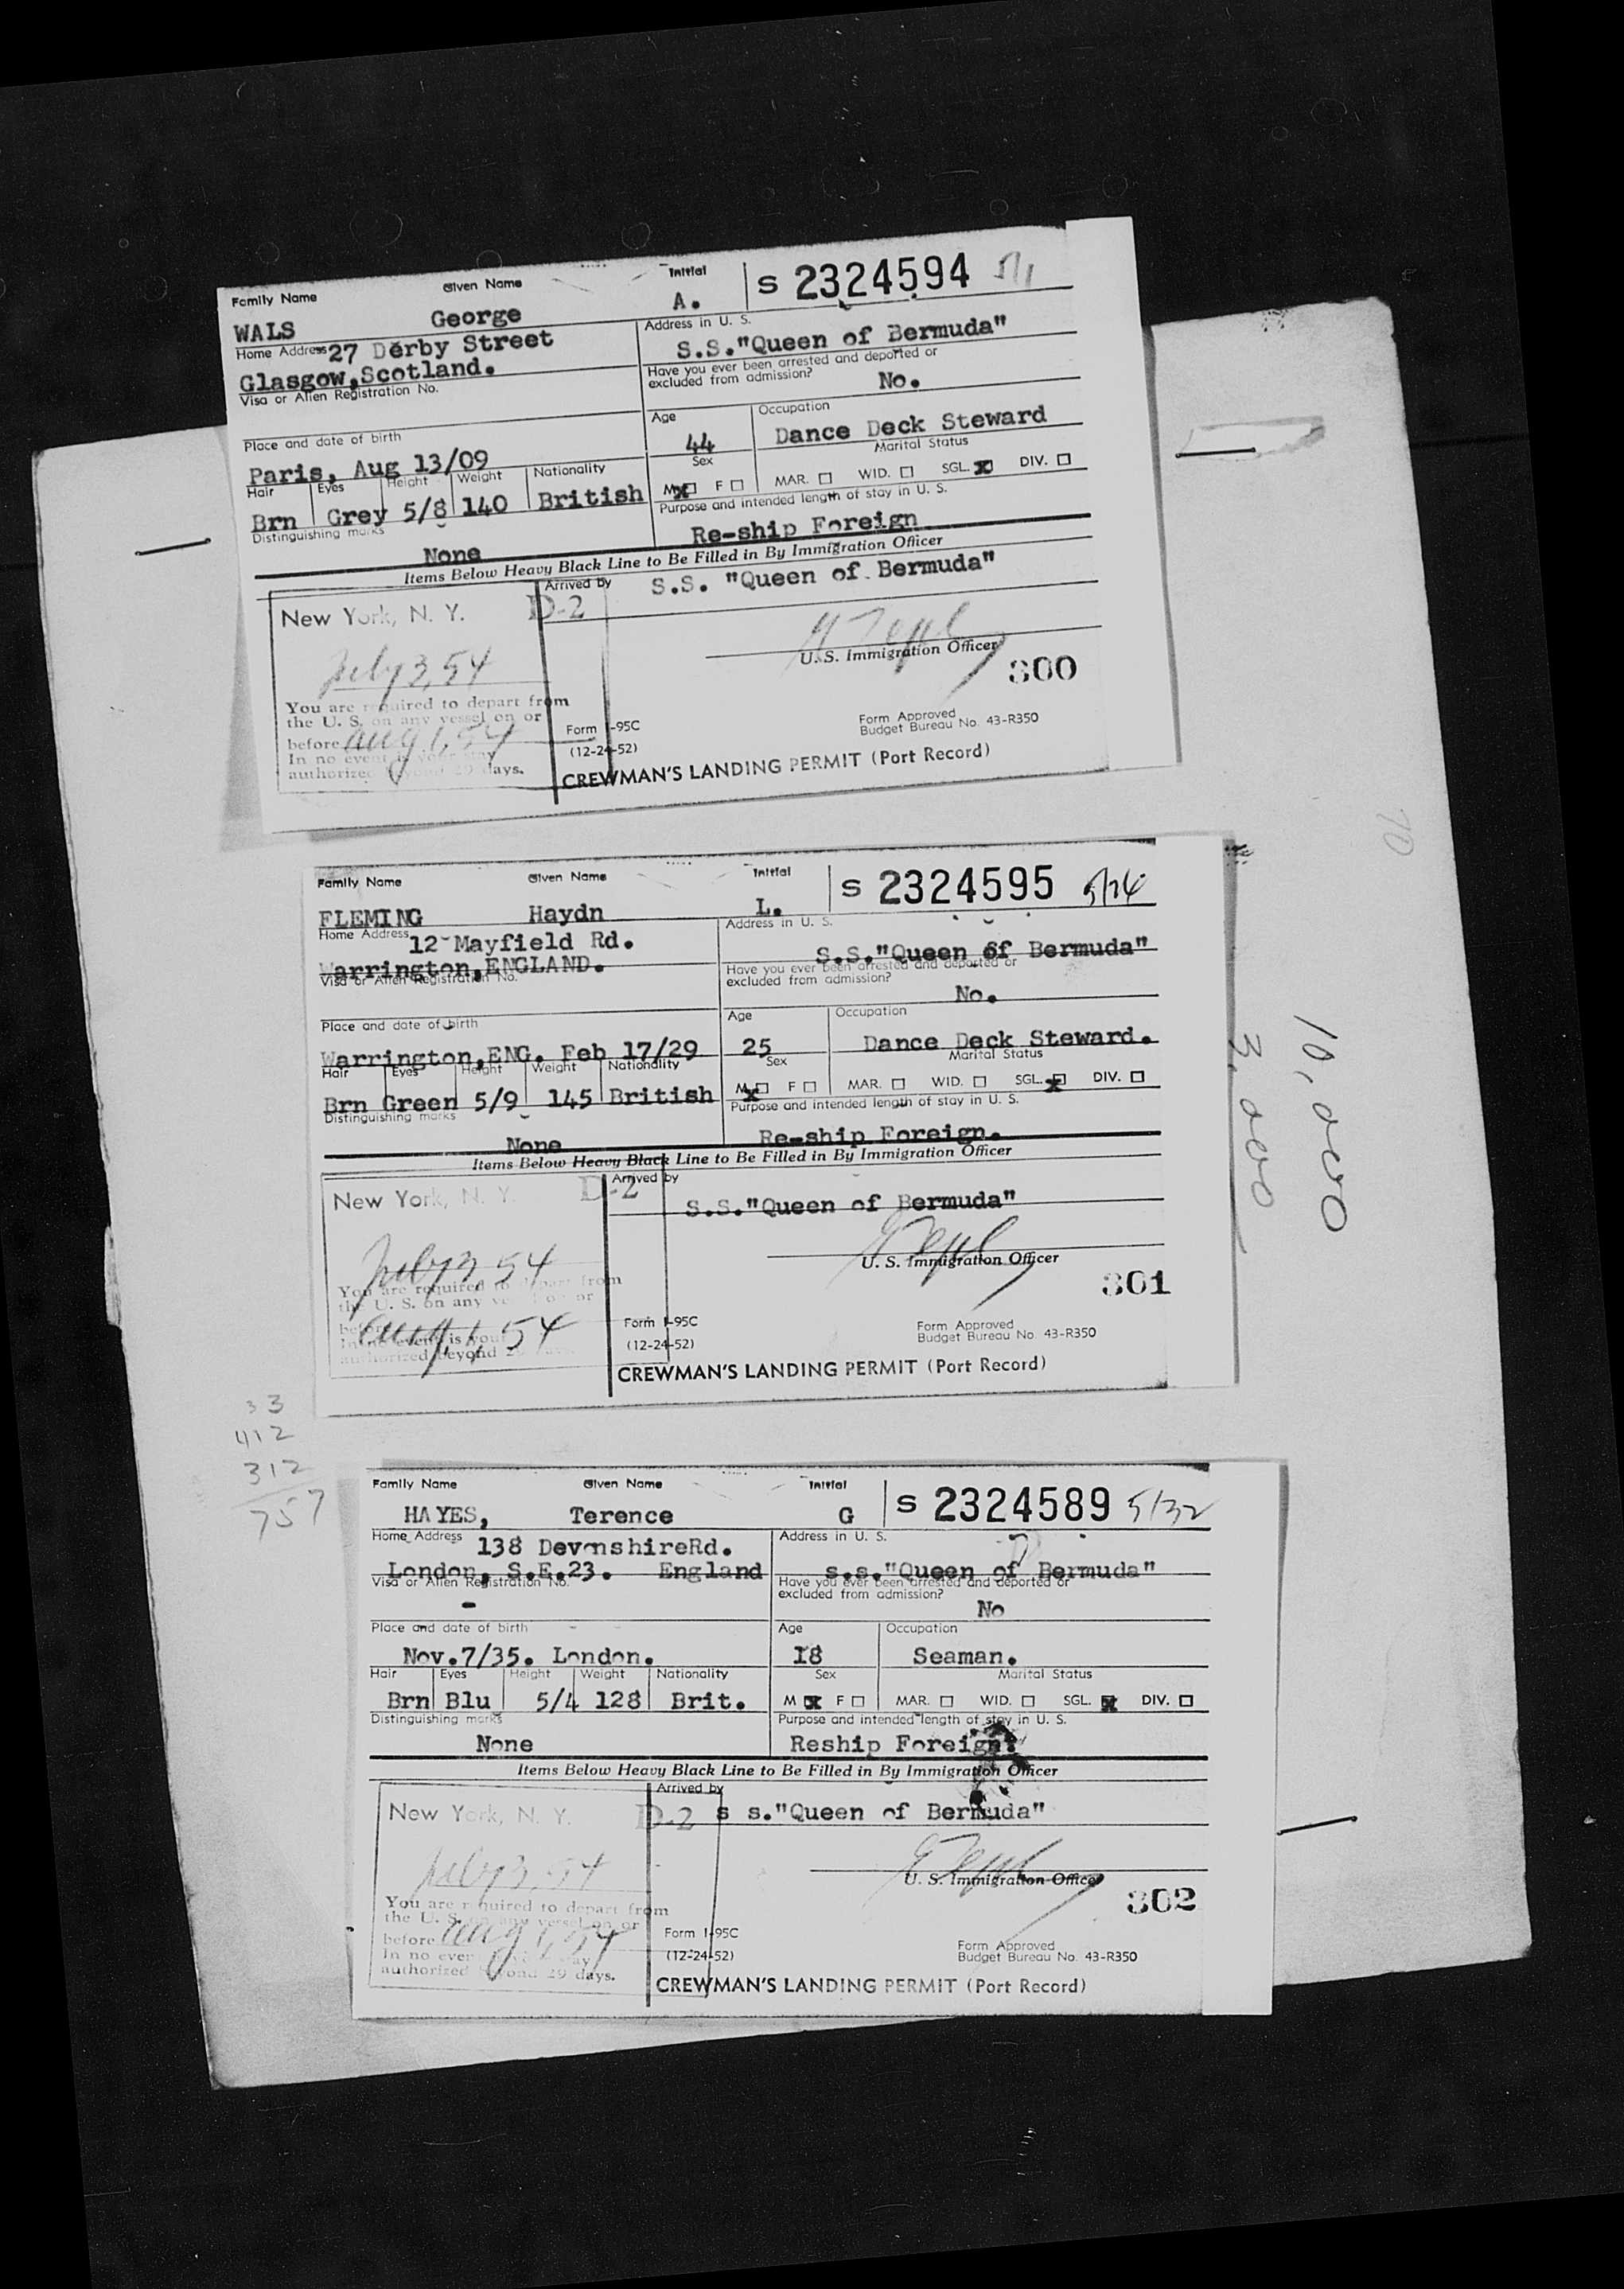 Family Name Given Name Initial S 2324594
WALS George A.
Home Address 27 Derby Street Address in U. S.
Glasgow,Scotland. S.S."Queen of Bermuda"
Visa or Alien Registration No. Have you ever been arrested and deported or
excluded from admission? No.
Place and date of birth Age Occupation
Paris, Aug 13/09 44 Dance Deck Steward
Hair Eyes Height Weight Nationality Sex Marital Status
Brn Grey 5/8 140 British M X F MAR. WID. SGL. X DIV.
Distinguishing marks Purpose and intended length of stay in U. S.
None Re-ship Foreign
Items Below Heavy Black Line to Be Filled in By Immigration Officer
New York, N. Y. D-2 Arrived by S.S. "Queen of Bermuda"
July 3, 54 U. S. Immigration Officer
300
You are required to depart from
the U. S. on any vessel on or
before Aug 1, 54 Form I-95C Form Approved
In no event is your stay (12-24-52) Budget Bureau No. 43-R350
authorized beyond 29 days. CREWMAN'S LANDING PERMIT (Port Record)
Family Name Given Name Initial S 2324595 5/24
FLEMING Haydn L.
Home Address 12 Mayfield Rd. Address in U. S.
Warrington,ENGLAND. S.S."Queen of Bermuda"
Visa or Alien Registration No. Have you ever been arrested and deported or
excluded from admission? No.
Place and date of birth Age Occupation
Warrington,ENG. Feb 17/29 25 Dance Deck Steward.
Hair Eyes Height Weight Nationality Sex Marital Status
Brn Green 5/9 145 British M X F MAR. WID. SGL. X DIV.
Distinguishing marks Purpose and intended length of stay in U. S.
None Re-ship Foreign.
Items Below Heavy Black Line to Be Filled in By Immigration Officer
New York, N. Y. D-2 Arrived by S.S."Queen of Bermuda"
July 3, 54 U. S. Immigration Officer
301
You are required to depart from
the U. S. on any vessel on or
before Aug 1, 54 Form I-95C Form Approved
In no event is your (12-24-52) Budget Bureau No. 43-R350
authorized beyond CREWMAN'S LANDING PERMIT (Port Record)
10,000
3,000
70
33
412
312
757
Family Name Given Name Initial S 2324589 5/32
HAYES, Terence G
Home Address 138 DevonshireRd. Address in U. S.
London, S.E.23. England s.s."Queen of Bermuda"
Visa or Alien Registration No. Have you ever been arrested and deported or
- excluded from admission? No
Place and date of birth Age Occupation
Nov.7/35. London. 18 Seaman.
Hair Eyes Height Weight Nationality Sex Marital Status
Brn Blu 5/4 128 Brit. M X F MAR. WID. SGL. X DIV.
Distinguishing marks Purpose and intended length of stay in U. S.
None Reship Foreign.
Items Below Heavy Black Line to Be Filled in By Immigration Officer
New York, N. Y. D-2 Arrived by s s."Queen of Bermuda"
July 3, 54 U. S. Immigration Officer
302
You are required to depart from
the U. S. on any vessel on or
before Aug 1, 54 Form I-95C Form Approved
In no event is your stay (12-24-52) Budget Bureau No. 43-R350
authorized beyond 29 days. CREWMAN'S LANDING PERMIT (Port Record)